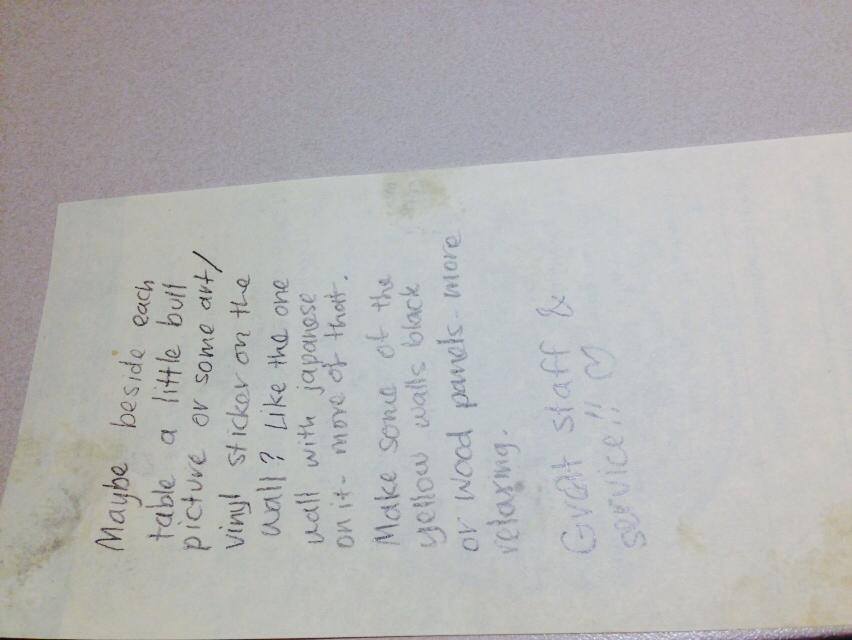 Maybe beside each
table a little bull
picture or some art/
vinyl sticker on the
wall? Like the one
wall with japanese
on it- more of that.
Make some of the
yellow walls black
or wood panels- more
relaxing.
Great staff &
service!! ♡